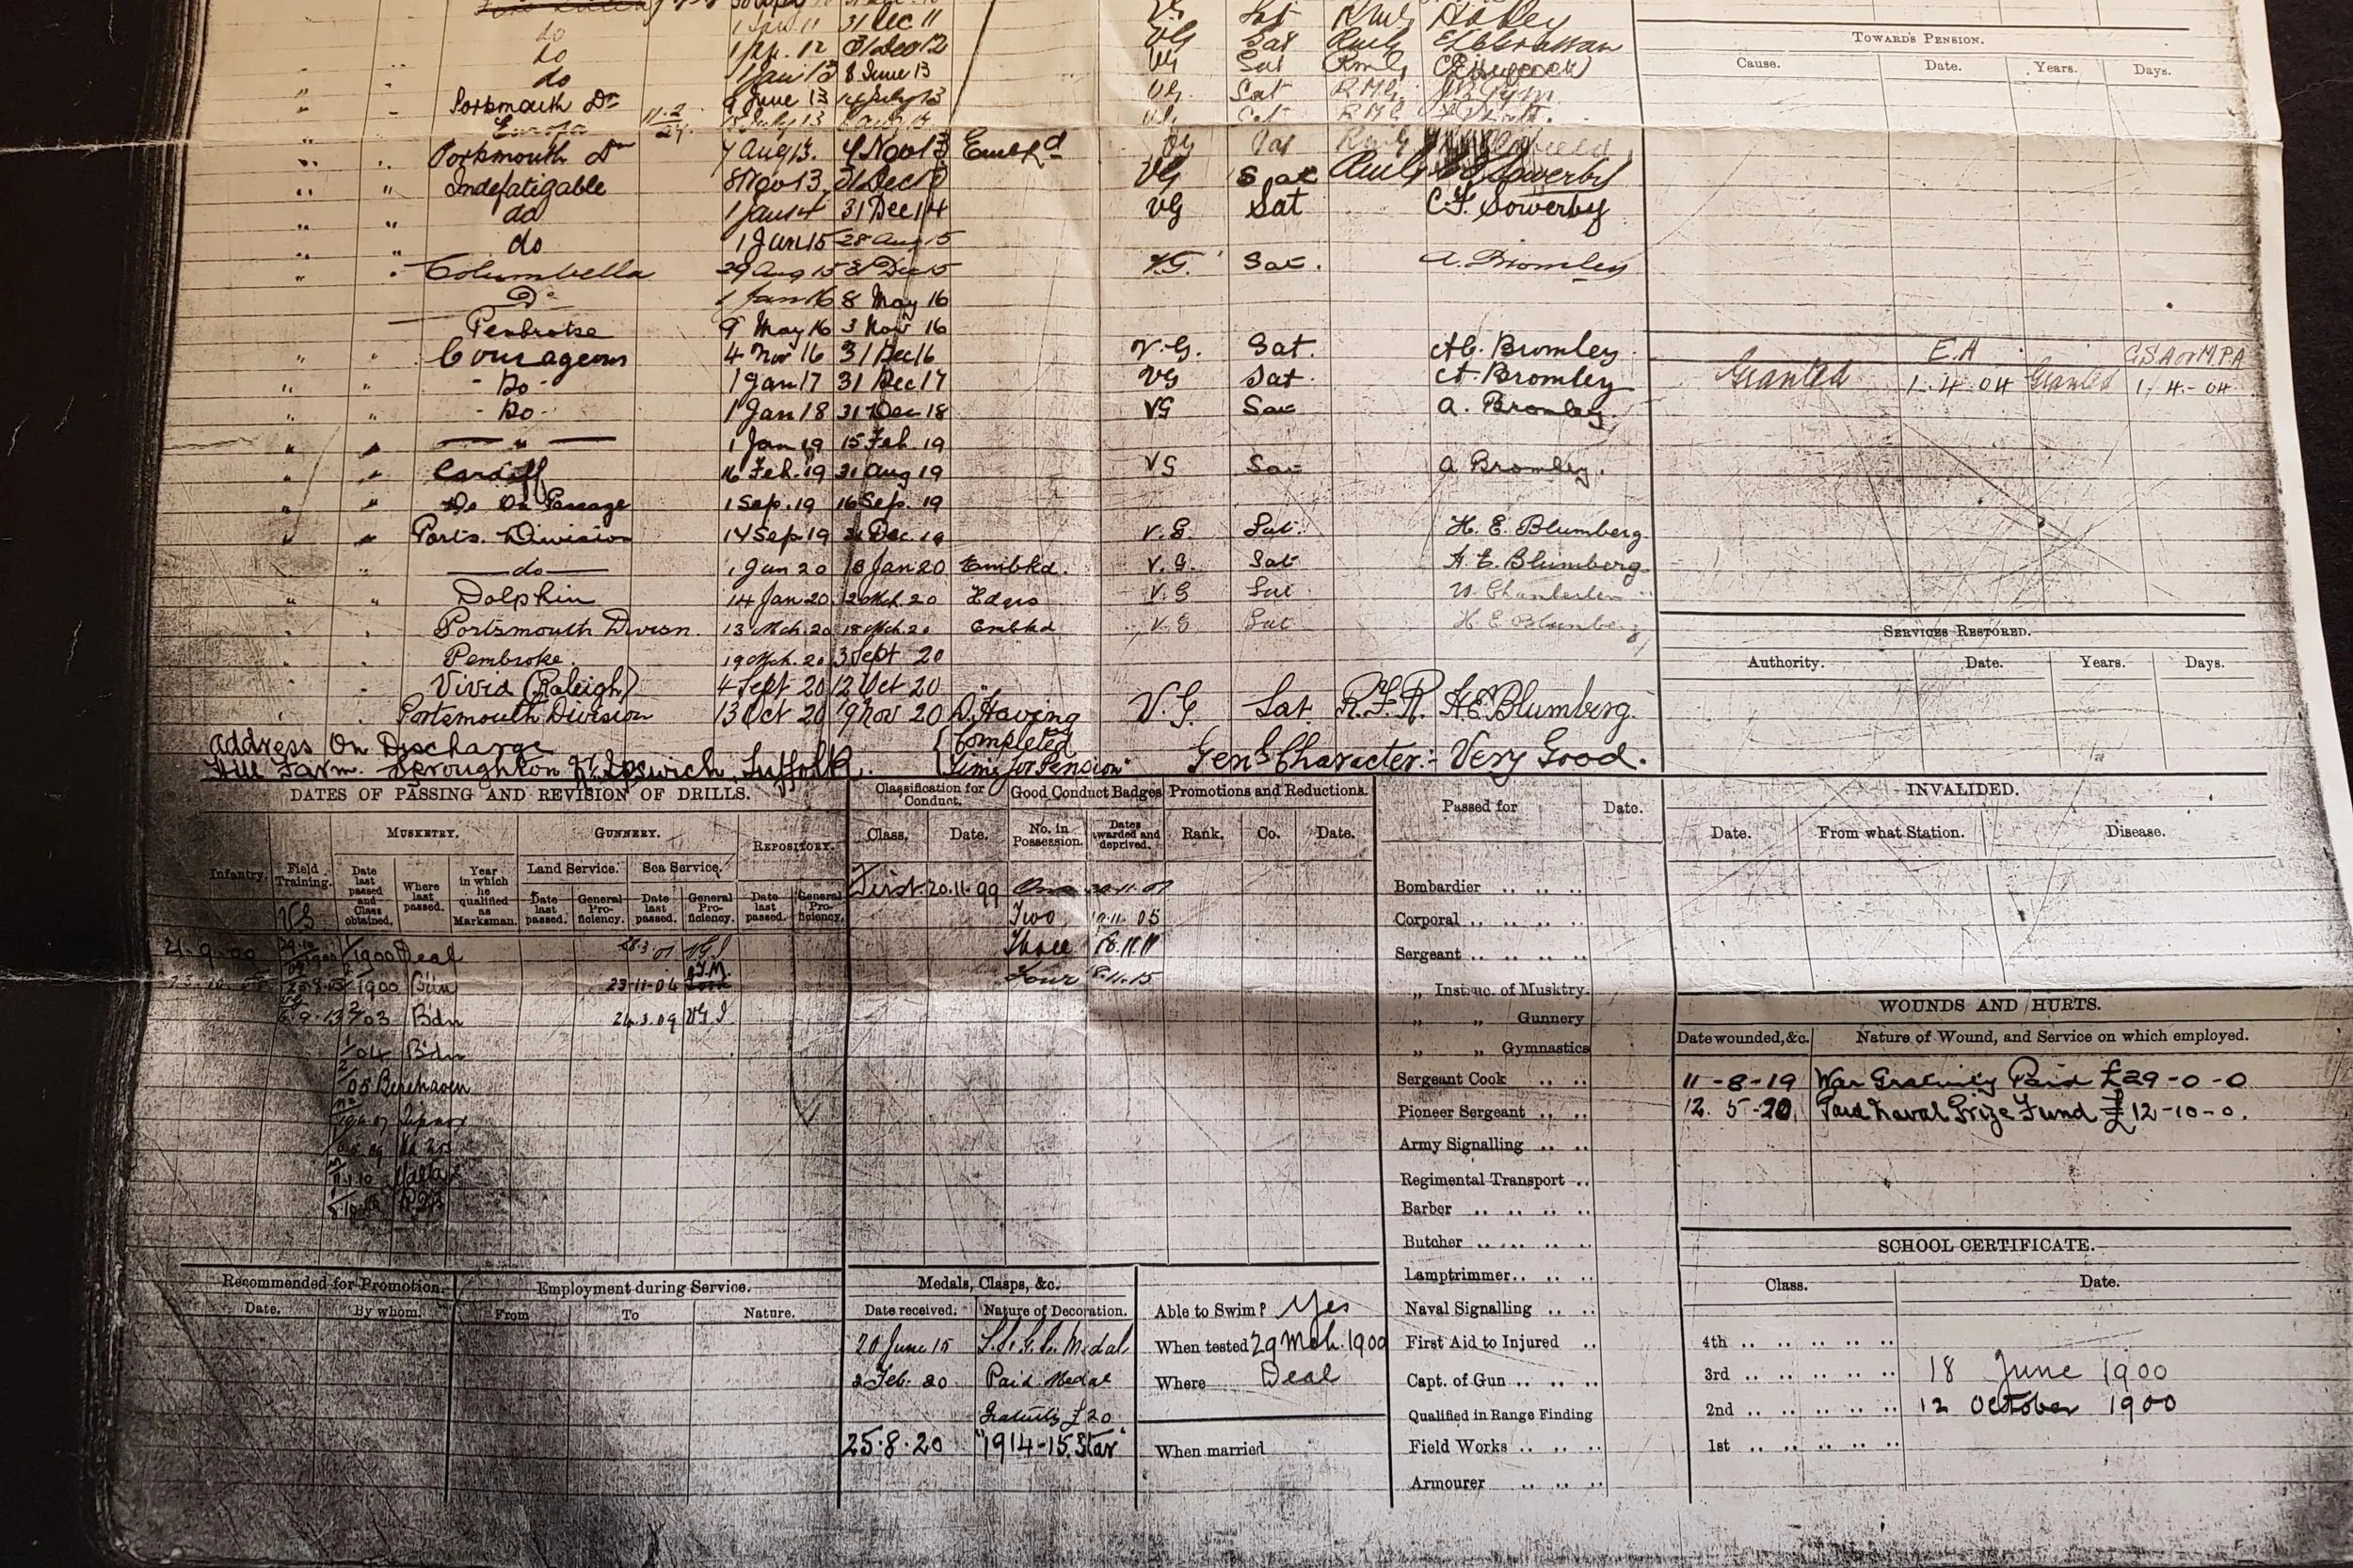 do 1 Jan 11 31 Dec 11 VG Sat RMLI
do 12 31 Dec 12 VG Sat RMLI
do 1 Jan 13 8 June 13 VG Sat RMLI
Portsmouth Dn 9 June 13 14 July 13 VG. Sat RMLI
Europa 11.2/24.
Portsmouth Dn 7 Aug 13. 4 Nov 13 Embkd VG Sat RMLI
Indefatigable 8 Nov 13 31 Dec 13 VG Sat RMLI Sowerby
do 1 Jan 14 31 Dec 14 VG Sat C.F. Sowerby
do 1 Jan 15 28 Aug 15
Columbella 29 Aug 15 31 Dec 15 V.G. Sat. A. Bromley
Do 1 Jan 16 8 May 16
Pembroke 9 May 16 3 Nov 16
Courageous 4 Nov 16 31 Dec 16 V.G. Sat. A. Bromley
- Do - 1 Jan 17 31 Dec 17 VG Sat. A. Bromley
- Do - 1 Jan 18 31 Dec 18 VG Sat A. Bromley.
— " — 1 Jan 19 15 Feb. 19
Cardiff 16 Feb. 19 31 Aug 19 VG Sat A Bromley.
Do On Passage 1 Sep. 19 16 Sep. 19
Ports. Division 17 Sep 19 31 Dec. 19 V.G. Sat. H. E. Blumberg.
—do— 1 Jan 20 13 Jan 20 Embkd. V.G. Sat H. E. Blumberg.
Dolphin 14 Jan 20. 12 Mch. 20 Hdqrs V.G Sat W. Chamberlin
Portsmouth Divisn. 13 Mch. 20 18 Mch. 20 Embkd V.G Sat H. E Blumberg
Pembroke. 19 Mch. 20 3 Sept 20
Vivid (Raleigh) 4 Sept 20 12 Oct 20
Portsmouth Division 13 Oct 20 9 Nov 20 D. Having Completed Time for Pension" V.G. Sat. R.F.R. H.E. Blumberg.
Address On Discharge
Hill Farm. Sproughton Nr. Ipswich. Suffolk.
Genl Character:- Very Good.
TOWARDS PENSION.
Cause. Date. Years. Days.
E.A G.S.A or M.P.A
Granted 1.4.04 Granted 1.4-04
SERVICES RESTORED.
Authority. Date. Years. Days.
DATES OF PASSING AND REVISION OF DRILLS.
MUSKETRY. GUNNERY. REPOSITORY.
Infantry. Field Training. Date last passed and Class obtained. Where last passed. Year in which he qualified as Marksman.
Land Service. Sea Service.
Date last passed. General Proficiency. Date last passed. General Proficiency. Date last passed. General Proficiency.
VG
21-9-00 1900 Deal 28.3.01 VGI
1900 Bdn 23-11-04
2/03 Bdn 24.3.09 VGI
1/04 Bdn
2/05 Berehaven
Malta
Classification for Conduct. Good Conduct Badges Promotions and Reductions.
Class. Date. No. in Possession. Dates awarded and deprived. Rank. Co. Date.
First 20.11.99 One
Two 19.11.05
Three 18.11.11
Four 18.11.15
Passed for Date.
Bombardier
Corporal
Sergeant
„ Instruc. of Musktry.
„ „ Gunnery
„ „ Gymnastics
Sergeant Cook
Pioneer Sergeant
Army Signalling
Regimental Transport
Barber
Butcher
Lamptrimmer
Naval Signalling
First Aid to Injured
Capt. of Gun
Qualified in Range Finding
Field Works
Armourer
INVALIDED.
Date. From what Station. Disease.
WOUNDS AND HURTS.
Date wounded, &c. Nature of Wound, and Service on which employed.
11-8-19 War Gratuity Paid £29-0-0
12.5-20. Paid Naval Prize Fund £12-10-0.
SCHOOL CERTIFICATE.
Class. Date.
4th
3rd 18 June 1900
2nd 12 October 1900
1st
Recommended for Promotion. Employment during Service.
Date. By whom. From To Nature.
Medals, Clasps, &c.
Date received. Nature of Decoration.
20 June 15 L.S.G.C. Medal
2 Feb. 20 Paid Medal
Gratuity £20.
25.8.20 "1914-15 Star"
Able to Swim? Yes
When tested 29 Mch. 1900
Where Deal
When married